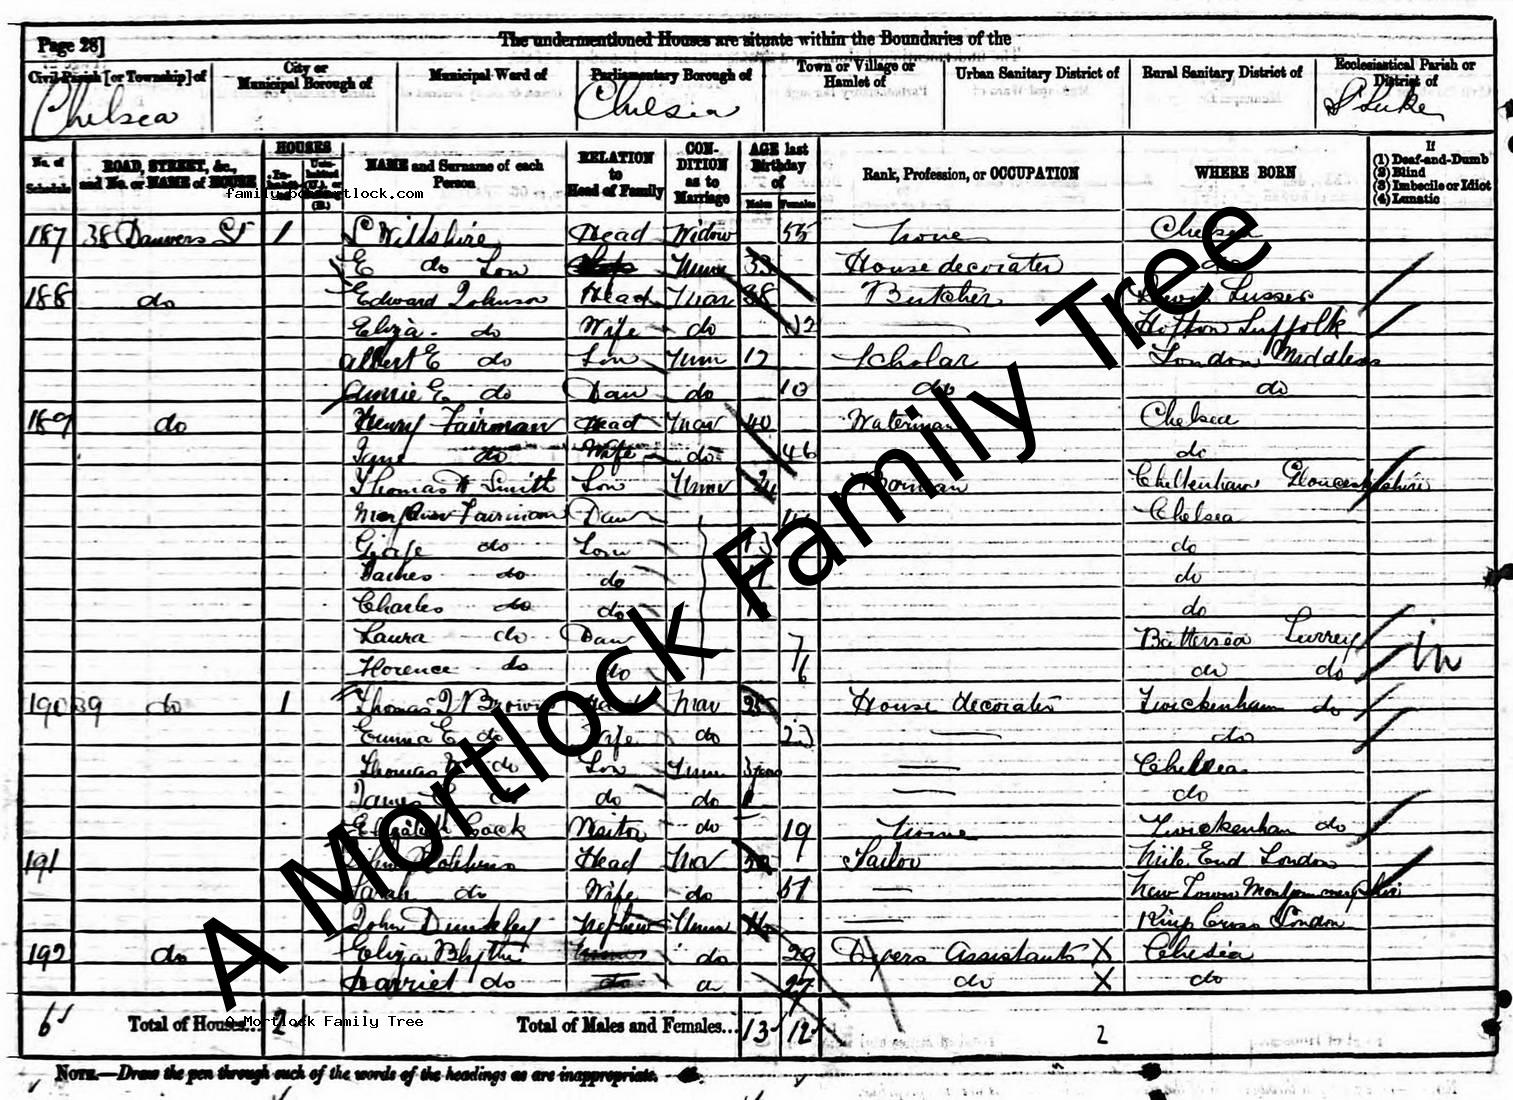 Page 28]
The undermentioned Houses are situate within the Boundaries of the
Civil Parish [or Township] of
City or Municipal Borough of
Municipal Ward of
Parliamentary Borough of
Town or Village or Hamlet of
Urban Sanitary District of
Rural Sanitary District of
Ecclesiastical Parish or District of
Chelsea Chelsea St Luke
No. of Schedule
ROAD, STREET, &c., and No. or NAME of HOUSE
HOUSES
NAME and Surname of each Person
RELATION to Head of Family
CONDITION as to Marriage
AGE last Birthday of
Males Females
Rank, Profession, or OCCUPATION
WHERE BORN
If
(1) Deaf-and-Dumb
(2) Blind
(3) Imbecile or Idiot
(4) Lunatic
187 38 Danvers St 1 Willshire Head Widow 55 none Chelsea
E do Son Unm 33 House decorator do
188 do Edward Johnson Head Mar 38 Butcher Sussex
Eliza do Wife do Suffolk
Albert E do Son Unm 12 Scholar London Middlesex
Annie E do Daur do 10 do do
189 do Henry Fairman Head Mar 40 Waterman Chelsea
Jane do Wife do 46 do
Thomas Smith Son Unm 24 Cheltenham Gloucestershire
Fairman Daur Chelsea
George do Son 13 do
James do do do
Charles do do do
Laura do Daur 7 Battersea Surrey
Florence do do 6 do do
190 39 do 1 Thomas J Brown Head Mar 25 House decorator Twickenham do
Emma E do Wife do 23 do
Thomas do Son Unm Chelsea
James do do do do
Elizabeth Cock Visitor do 19 none Twickenham do
191 John Head Mar Tailor Mile End London
Sarah do Wife do 51 New Town
John Dunkley Nephew Unm Kings Cross London
192 do Eliza Blythe do 29 Dyers Assistants X Chelsea
Harriet do do 27 do X do
6 Total of Houses... 2 Total of Males and Females... 13 12 2
NOTE.—Draw the pen through such of the words of the headings as are inappropriate.
family
mortlock.com
A Mortlock Family Tree
A Mortlock Family Tree